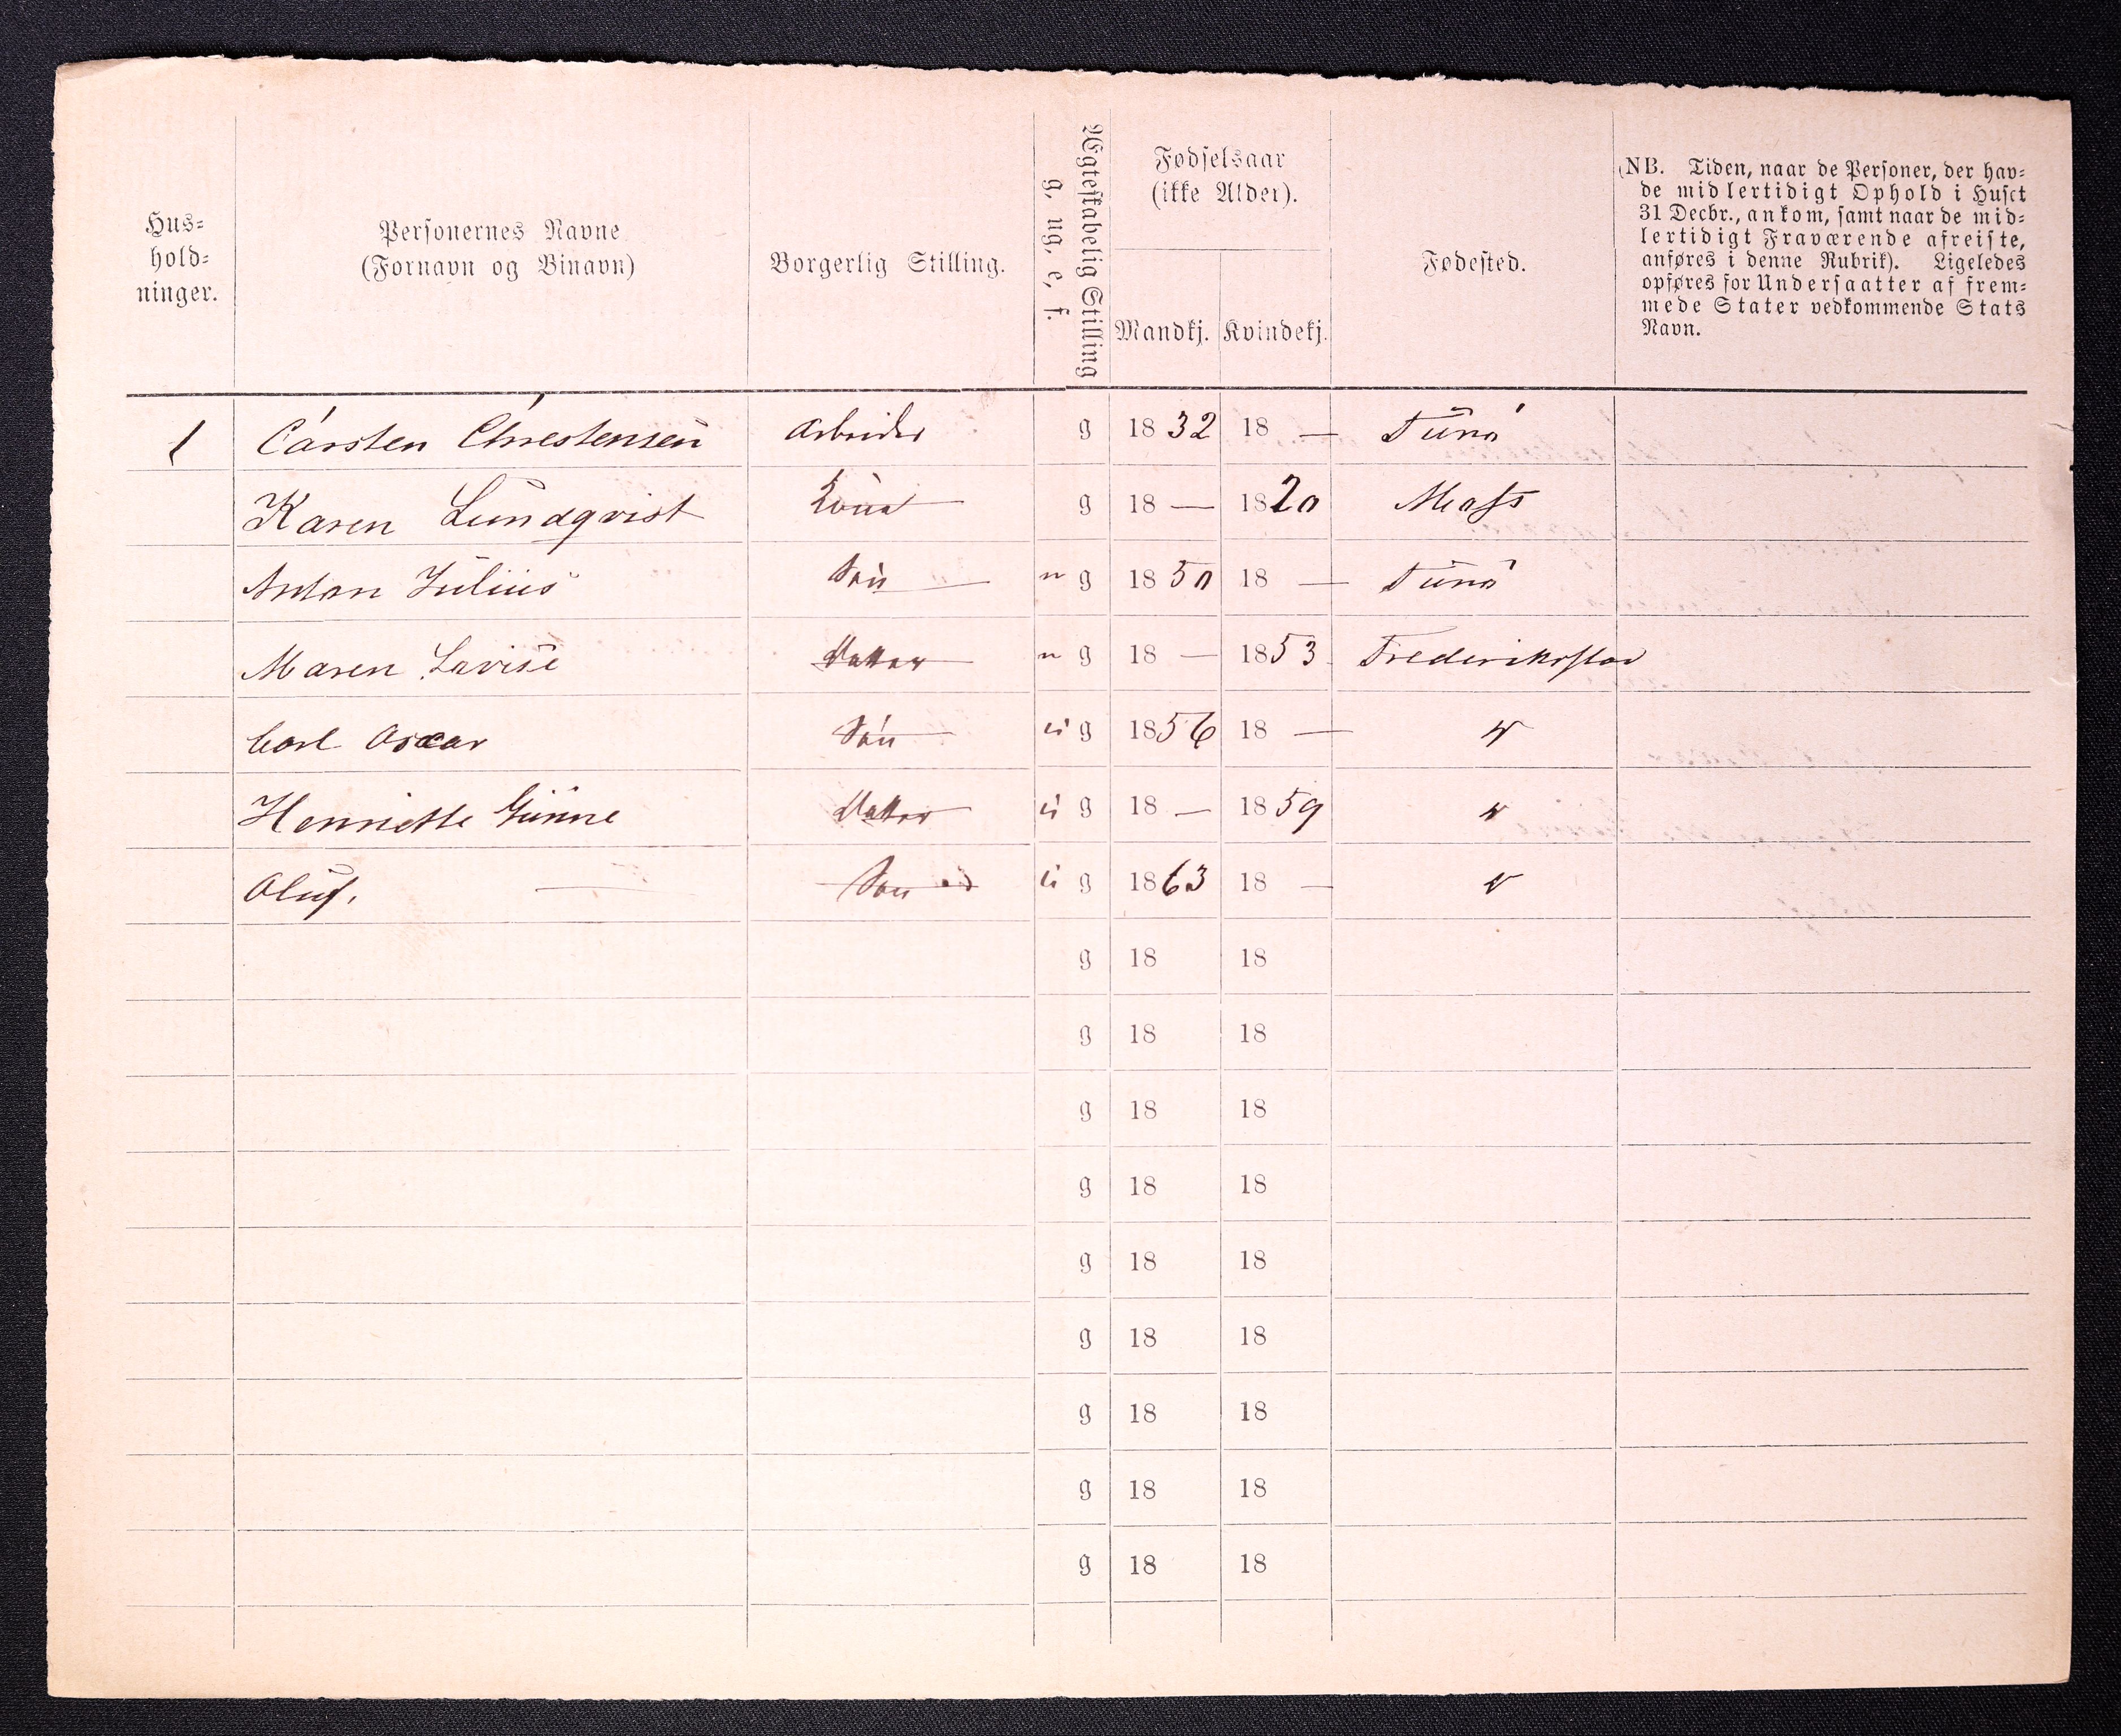 Hus-
hold-
ninger.
Personernes Navne
(Fornavn og Binavn)
Borgerlig Stilling.
Ægteskabelig Stilling
g, ug, e, f.
Fødselsaar
(ikke Alder).
Mandkj. Kvindekj.
Fødested.
(NB. Tiden, naar de Personer, der hav-
de midlertidigt Ophold i Huset
31 Decbr., ankom, samt naar de mid-
lertidigt Fraværende afreiste,
anføres i denne Rubrik). Ligeledes
opføres for Undersaatter af frem-
mede Stater vedkommende Stats
Navn.
1 Carsten Chrestensen Arbeider g 1832 18 — Tunø
Karen Lundqvist Kone g 18 — 1820 Moss
Anton Julius Søn u g 1850 18 — Tunø
Maren Lovise Datter u g 18 — 1853 Frederikstad
Carl Oscar Søn u g 1856 18 —
Henriette Datter u g 18 — 1859
Oluf. Søn u g 1863 18 —
g 18 18
g 18 18
g 18 18
g 18 18
g 18 18
g 18 18
g 18 18
g 18 18
g 18 18